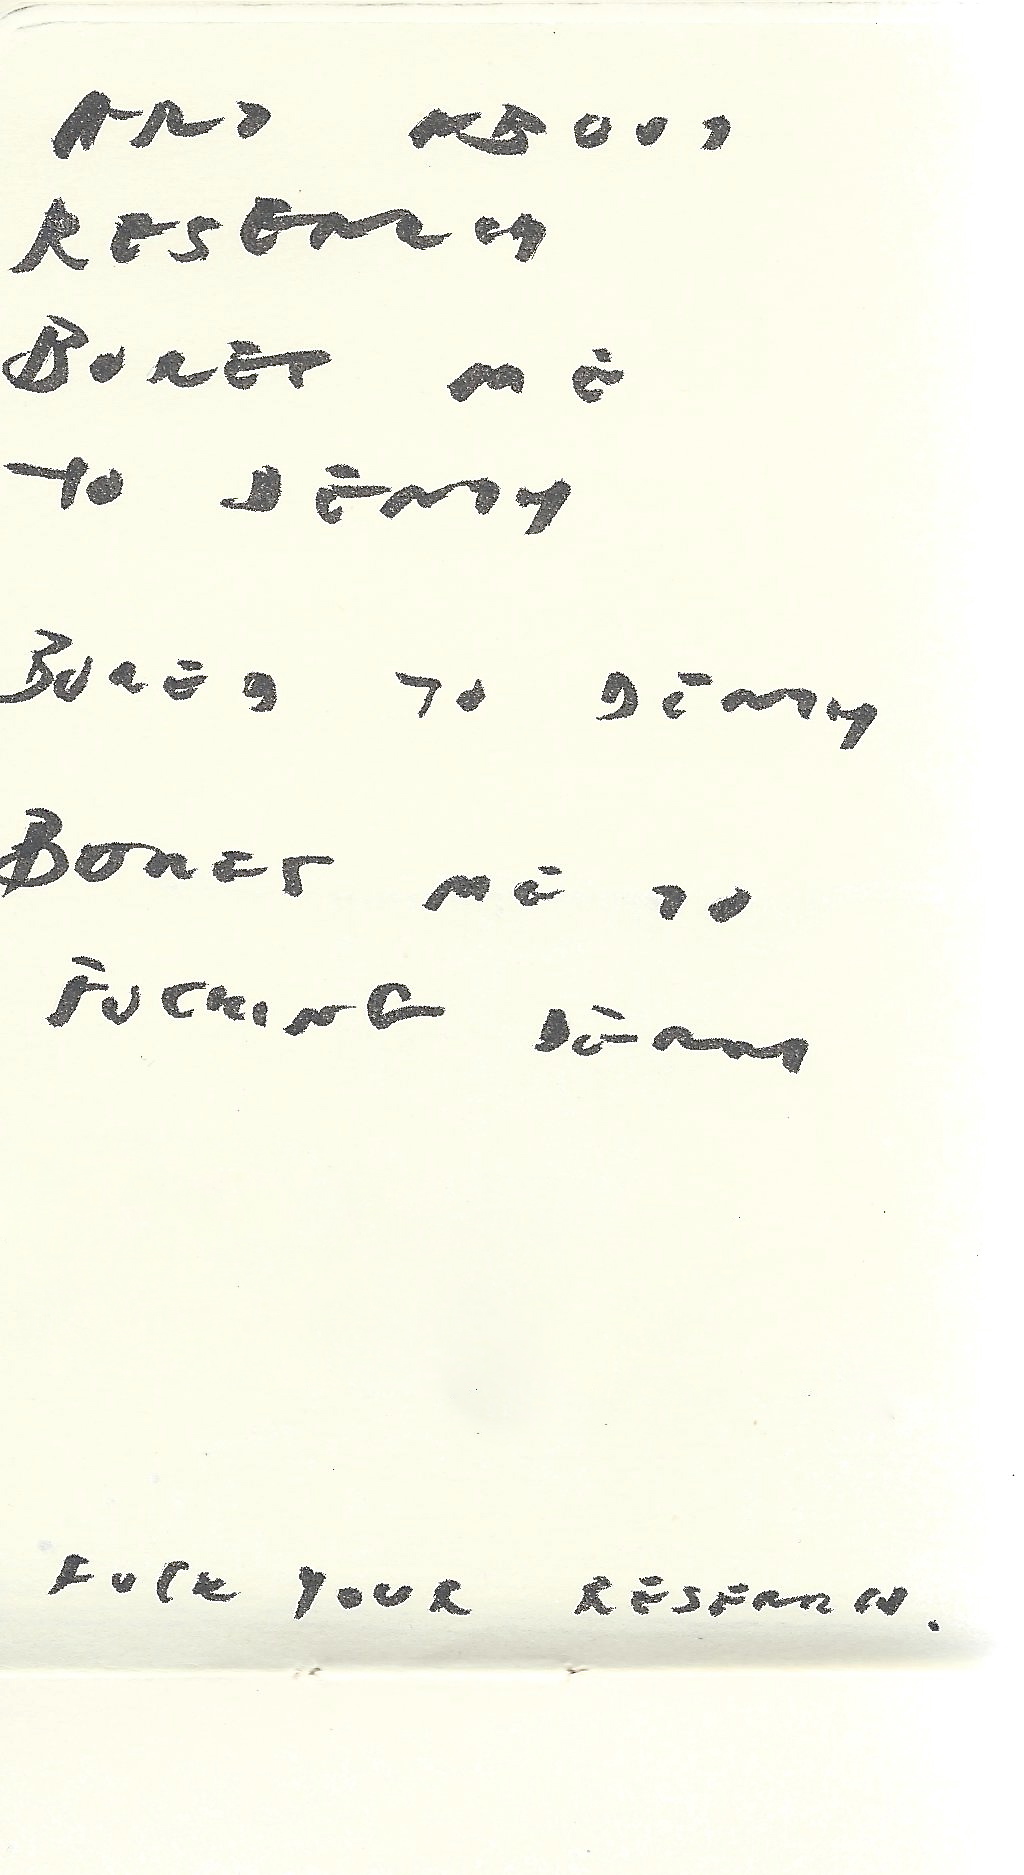 ART ABOUT
RESEARCH
BORES ME
TO DEATH
BORED TO DEATH
BORES ME TO
FUCKING DEATH
FUCK YOUR RESEARCH.